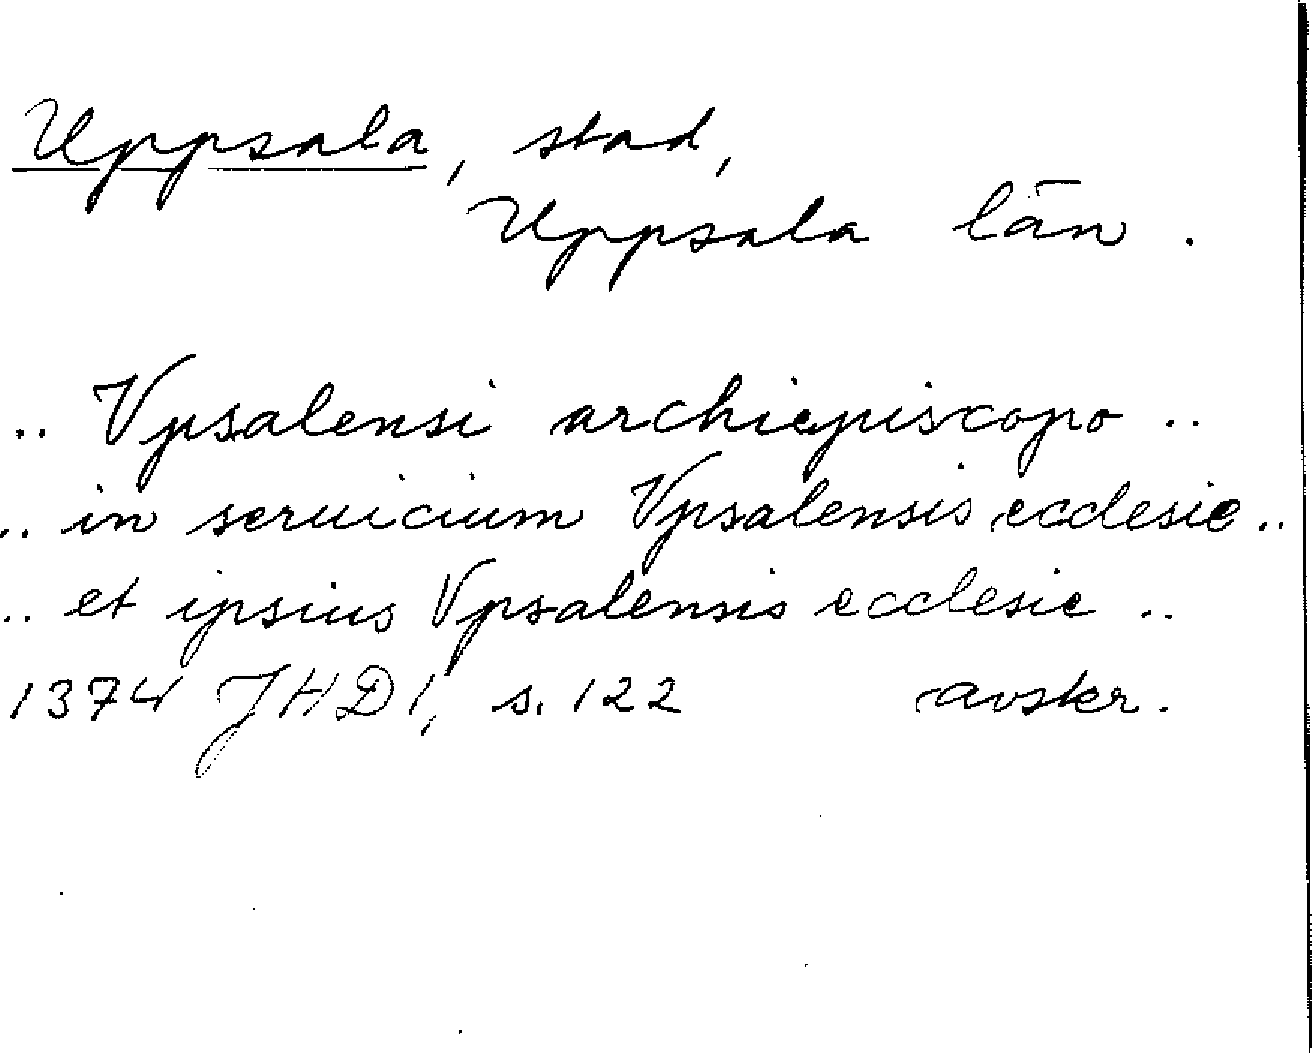 Uppsala, stad,
Uppsala län.
.. Vpsalensi archiepiscopo ..
.. in seruicium Vpsalensis ecclesie ..
.. et ipsius Vpsalensis ecclesie ..
1374 JHD 1, s. 122 avskr.